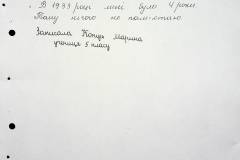 . В 1933 році мені було 4 роки.
Тому нічого не пам'ятаю.
Записала Копць Марина
учениця 5 класу